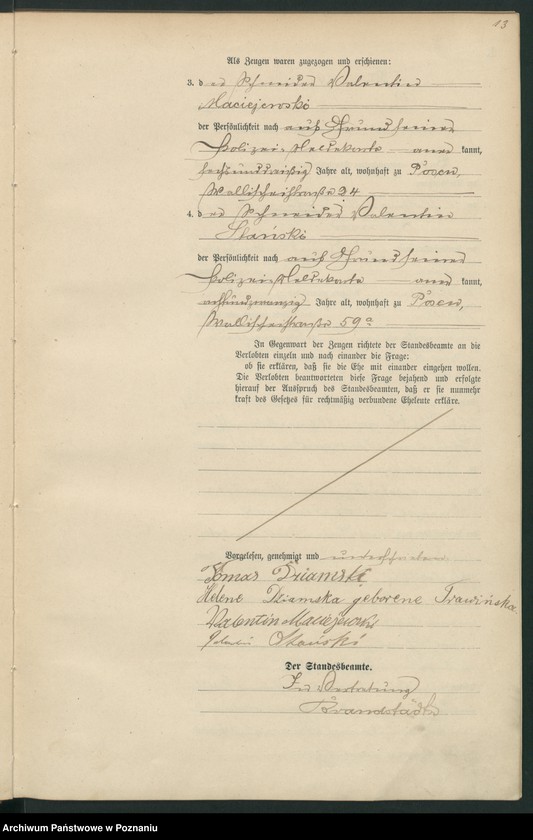 13
Als Zeugen waren zugezogen und erschienen:
3. der Schneider Valentin
Maciejewski
der Persönlichkeit nach auf Grund seiner
Polizei-Meldekarte anerkannt,
sechsunddreißig Jahre alt, wohnhaft zu Posen,
Wallischeistraße 24
4. der Schneider Valentin
Skański
der Persönlichkeit nach auf Grund seiner
Polizei-Meldekarte anerkannt,
achtundzwanzig Jahre alt, wohnhaft zu Posen,
Wallischeistraße 59a
In Gegenwart der Zeugen richtete der Standesbeamte an die
Verlobten einzeln und nach einander die Frage:
ob sie erklären, daß sie die Ehe mit einander eingehen wollen.
Die Verlobten beantworteten diese Frage bejahend und erfolgte
hierauf der Ausspruch des Standesbeamten, daß er sie nunmehr
kraft des Gesetzes für rechtmäßig verbundene Eheleute erkläre.
Vorgelesen, genehmigt und unterschrieben
Tomas Dziamski
Helene Dziamska geborene Trawińska
Valentin Maciejewski
Skański
Der Standesbeamte.
In Vertretung
Brandstädter
Archiwum Państwowe w Poznaniu